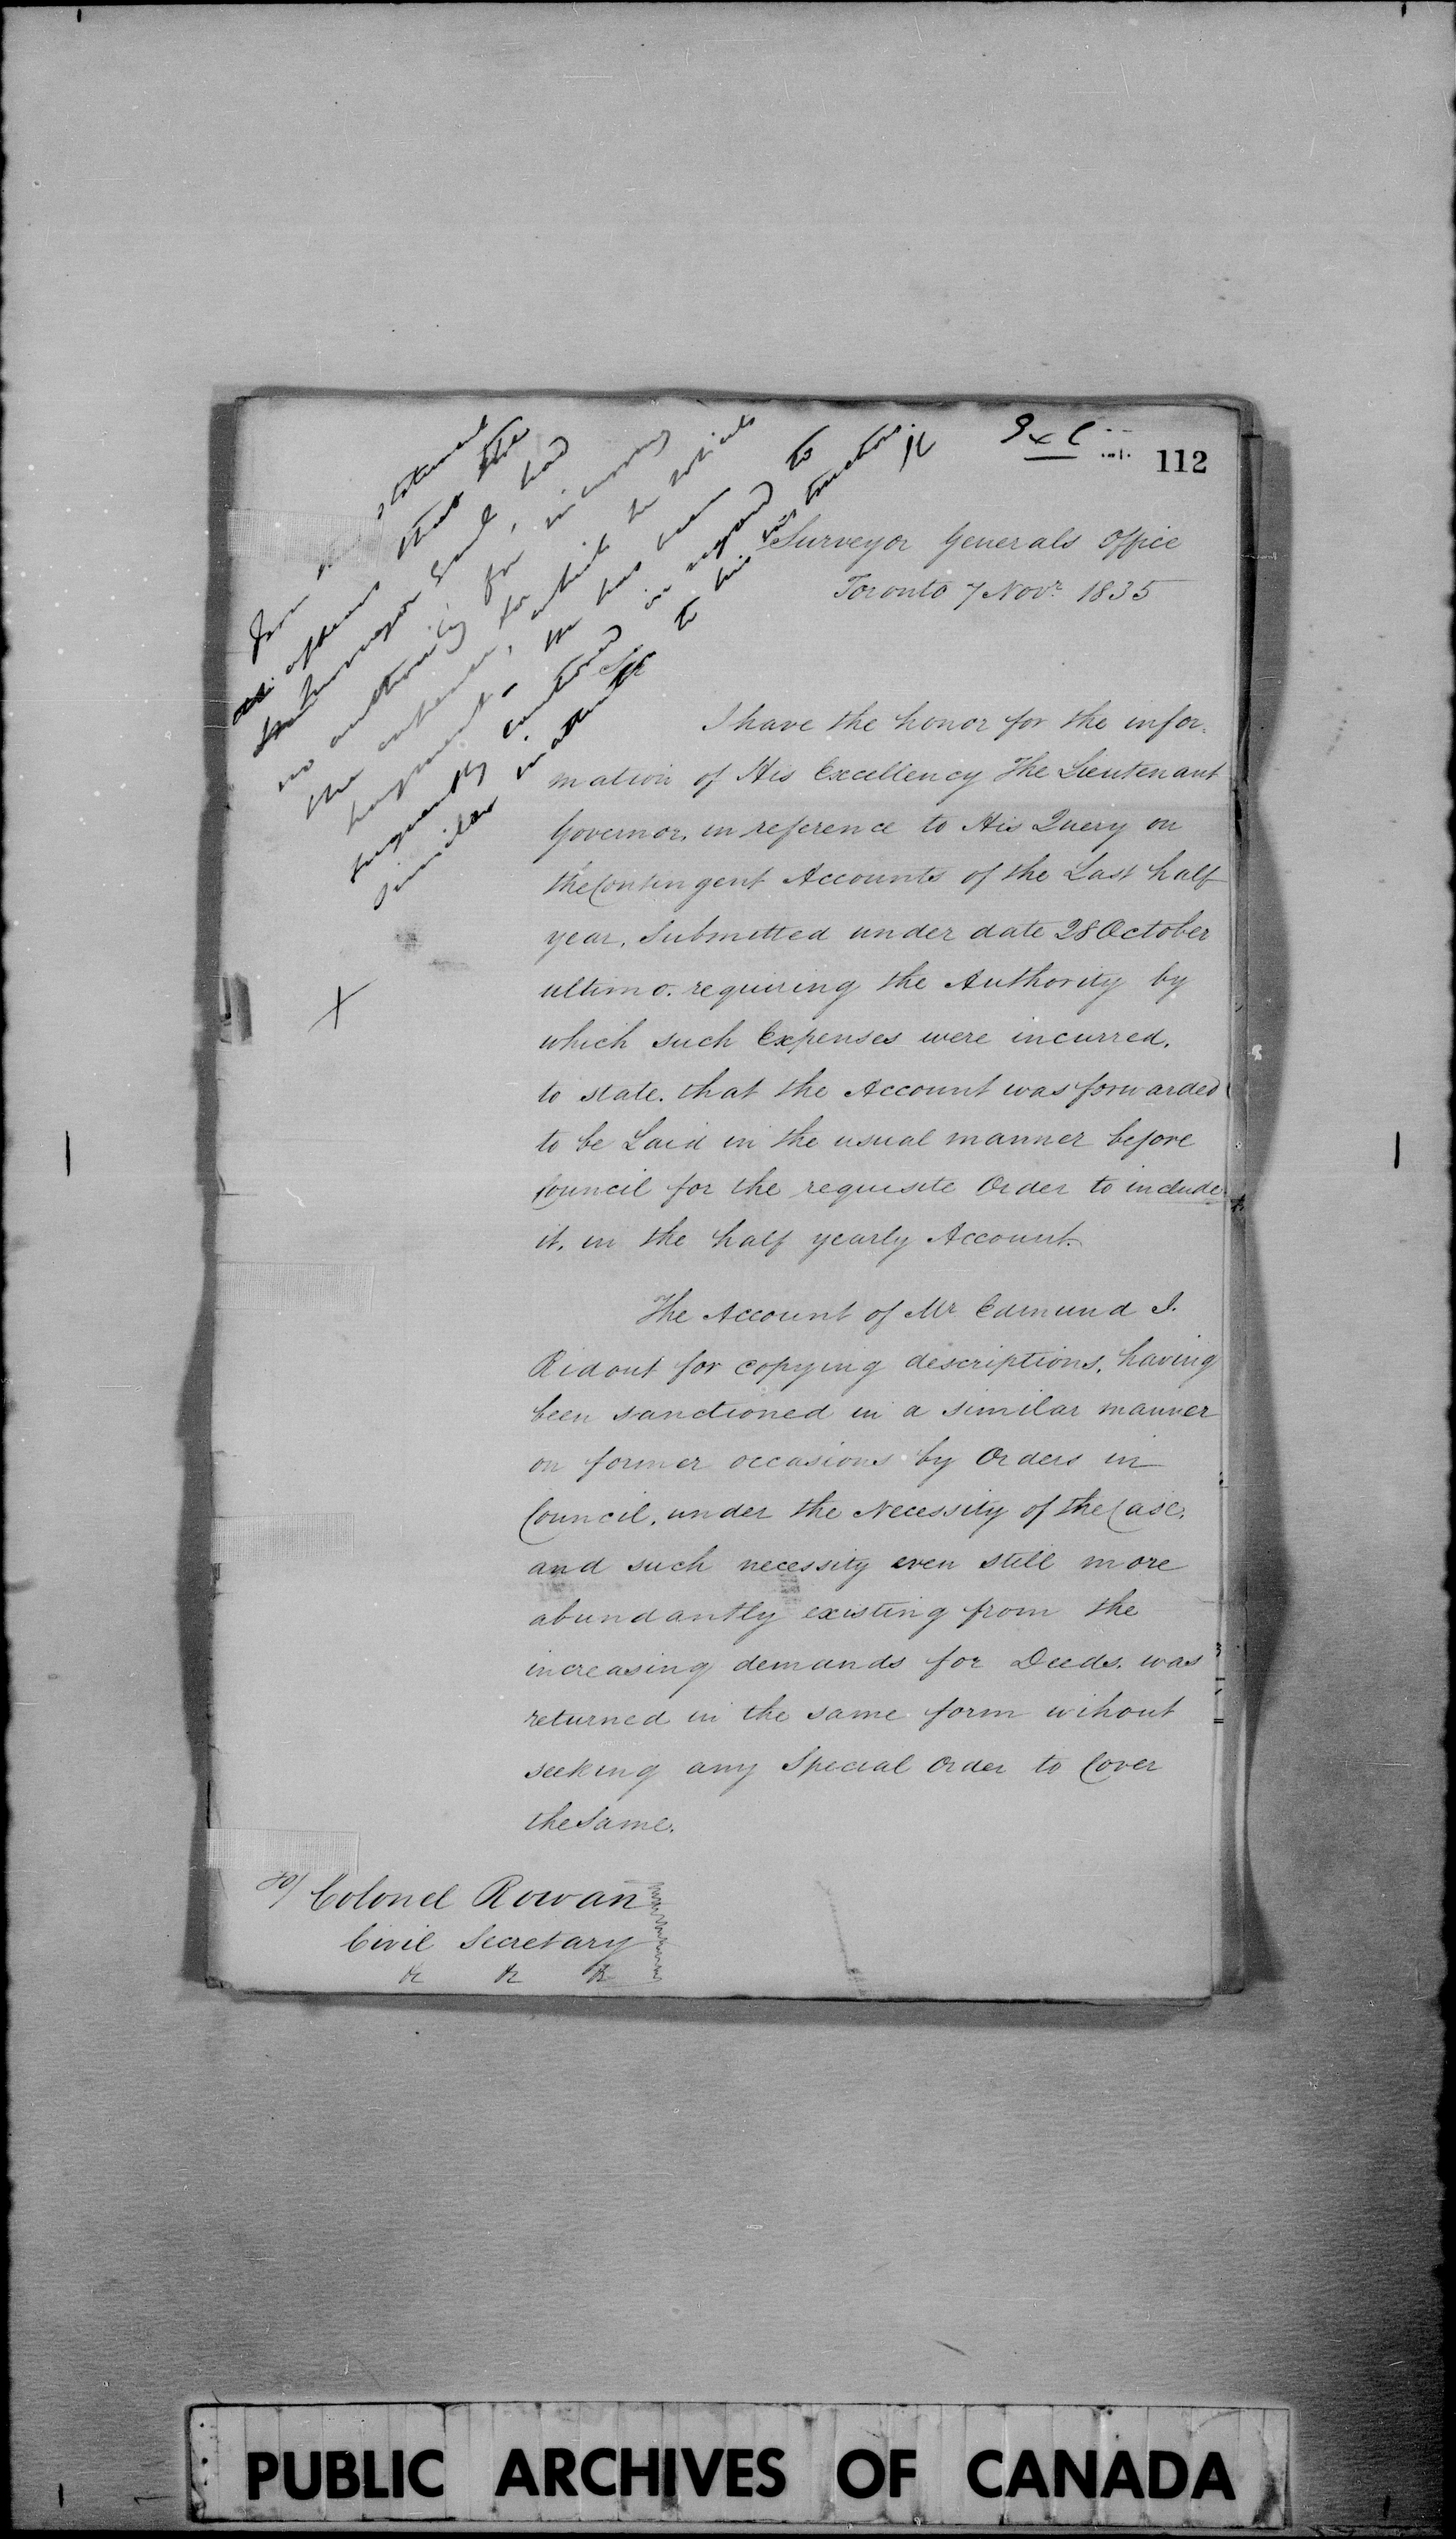 Ex C
112
Surveyor Generals Office
Toronto 7 Novr. 1835
statement
appears that the
the Surveyor Genl had
no authority for incurring
the expense, for which he solicits
payment - He has been
frequently cautioned in regard to
similar matters to his instructions.
Sir
I have the honor for the infor-
mation of His Excellency The Lieutenant
Governor, in reference to His Query on
the Contingent Accounts of the Last half
year, Submitted under date 28 October
ultimo. requiring the Authority by
which such Expenses were incurred,
to state. that the Account was forwarded
to be Laid in the usual manner before
Council for the requisite Order to include
it, in the half yearly Account.
The Account of Mr Edmund J.
Ridout for copying descriptions, having
been sanctioned in a similar manner
on former occasions by Orders in
Council, under the Necessity of the Case,
and such necessity even still more
abundantly existing from the
increasing demands for Deeds. was
returned in the same form wihout
seeking any Special Order to Cover
the Same.
To/ Colonel Rowan
Civil Secretary
&c &c &c
PUBLIC ARCHIVES OF CANADA